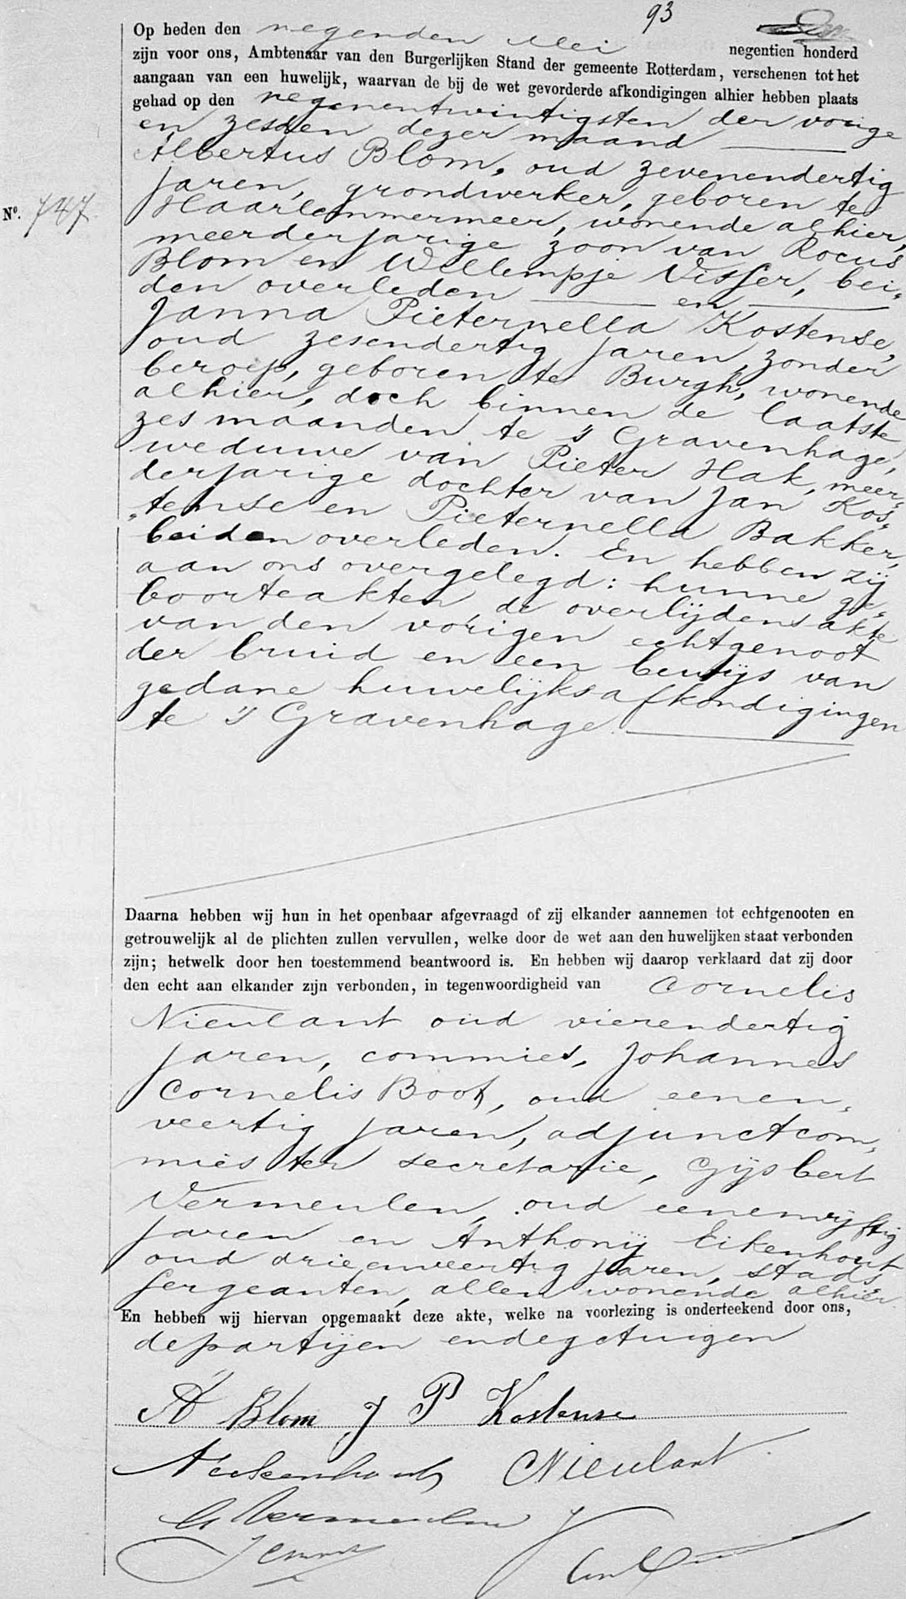 93
Op heden den negenden Mei negentien honderd
zijn voor ons, Ambtenaar van den Burgerlijken Stand der gemeente Rotterdam, verschenen tot het
aangaan van een huwelijk, waarvan de bij de wet gevorderde afkondigingen alhier hebben plaats
gehad op den negenentwintigsten der vorige
en zesden dezer maand
Nº. 747
Albertus Blom, oud zevenendertig
jaren, grondwerker, geboren te
Haarlemmermeer, wonende alhier,
meerderjarige zoon van Rocus
Blom en Willempje Visser, bei-
den overleden en
Janna Pieternella Kostense,
oud zesendertig jaren, zonder
beroep, geboren te Burgh, wonende
alhier, doch binnen de laatste
zes maanden te 's Gravenhage,
weduwe van Pieter Hak, meer-
derjarige dochter van Jan Kos-
tense en Pieternella Bakker,
beiden overleden. En hebben zij
aan ons overgelegd: hunne ge-
boorteakten, de overlijdensakte
van den vorigen echtgenoot
der bruid en een bewijs van
gedane huwelijksafkondigingen
te 's Gravenhage.
Daarna hebben wij hun in het openbaar afgevraagd of zij elkander aannemen tot echtgenooten en
getrouwelijk al de plichten zullen vervullen, welke door de wet aan den huwelijken staat verbonden
zijn; hetwelk door hen toestemmend beantwoord is. En hebben wij daarop verklaard dat zij door
den echt aan elkander zijn verbonden, in tegenwoordigheid van Cornelis
Nieulant oud vierendertig
jaren, commies, Johannes
Cornelis Boot, oud eenen-
veertig jaren, adjunctcom-
mies ter secretarie, Gijsbert
Vermeulen, oud eenenvijftig
jaren en Anthonij Eikenhout
oud drieenveertig jaren, stads
sergeanten, allen wonende alhier.
En hebben wij hiervan opgemaakt deze akte, welke na voorlezing is onderteekend door ons,
de partijen en de getuigen
A Blom J P Kostense
A Eikenhout C Nieulant
G Vermeulen